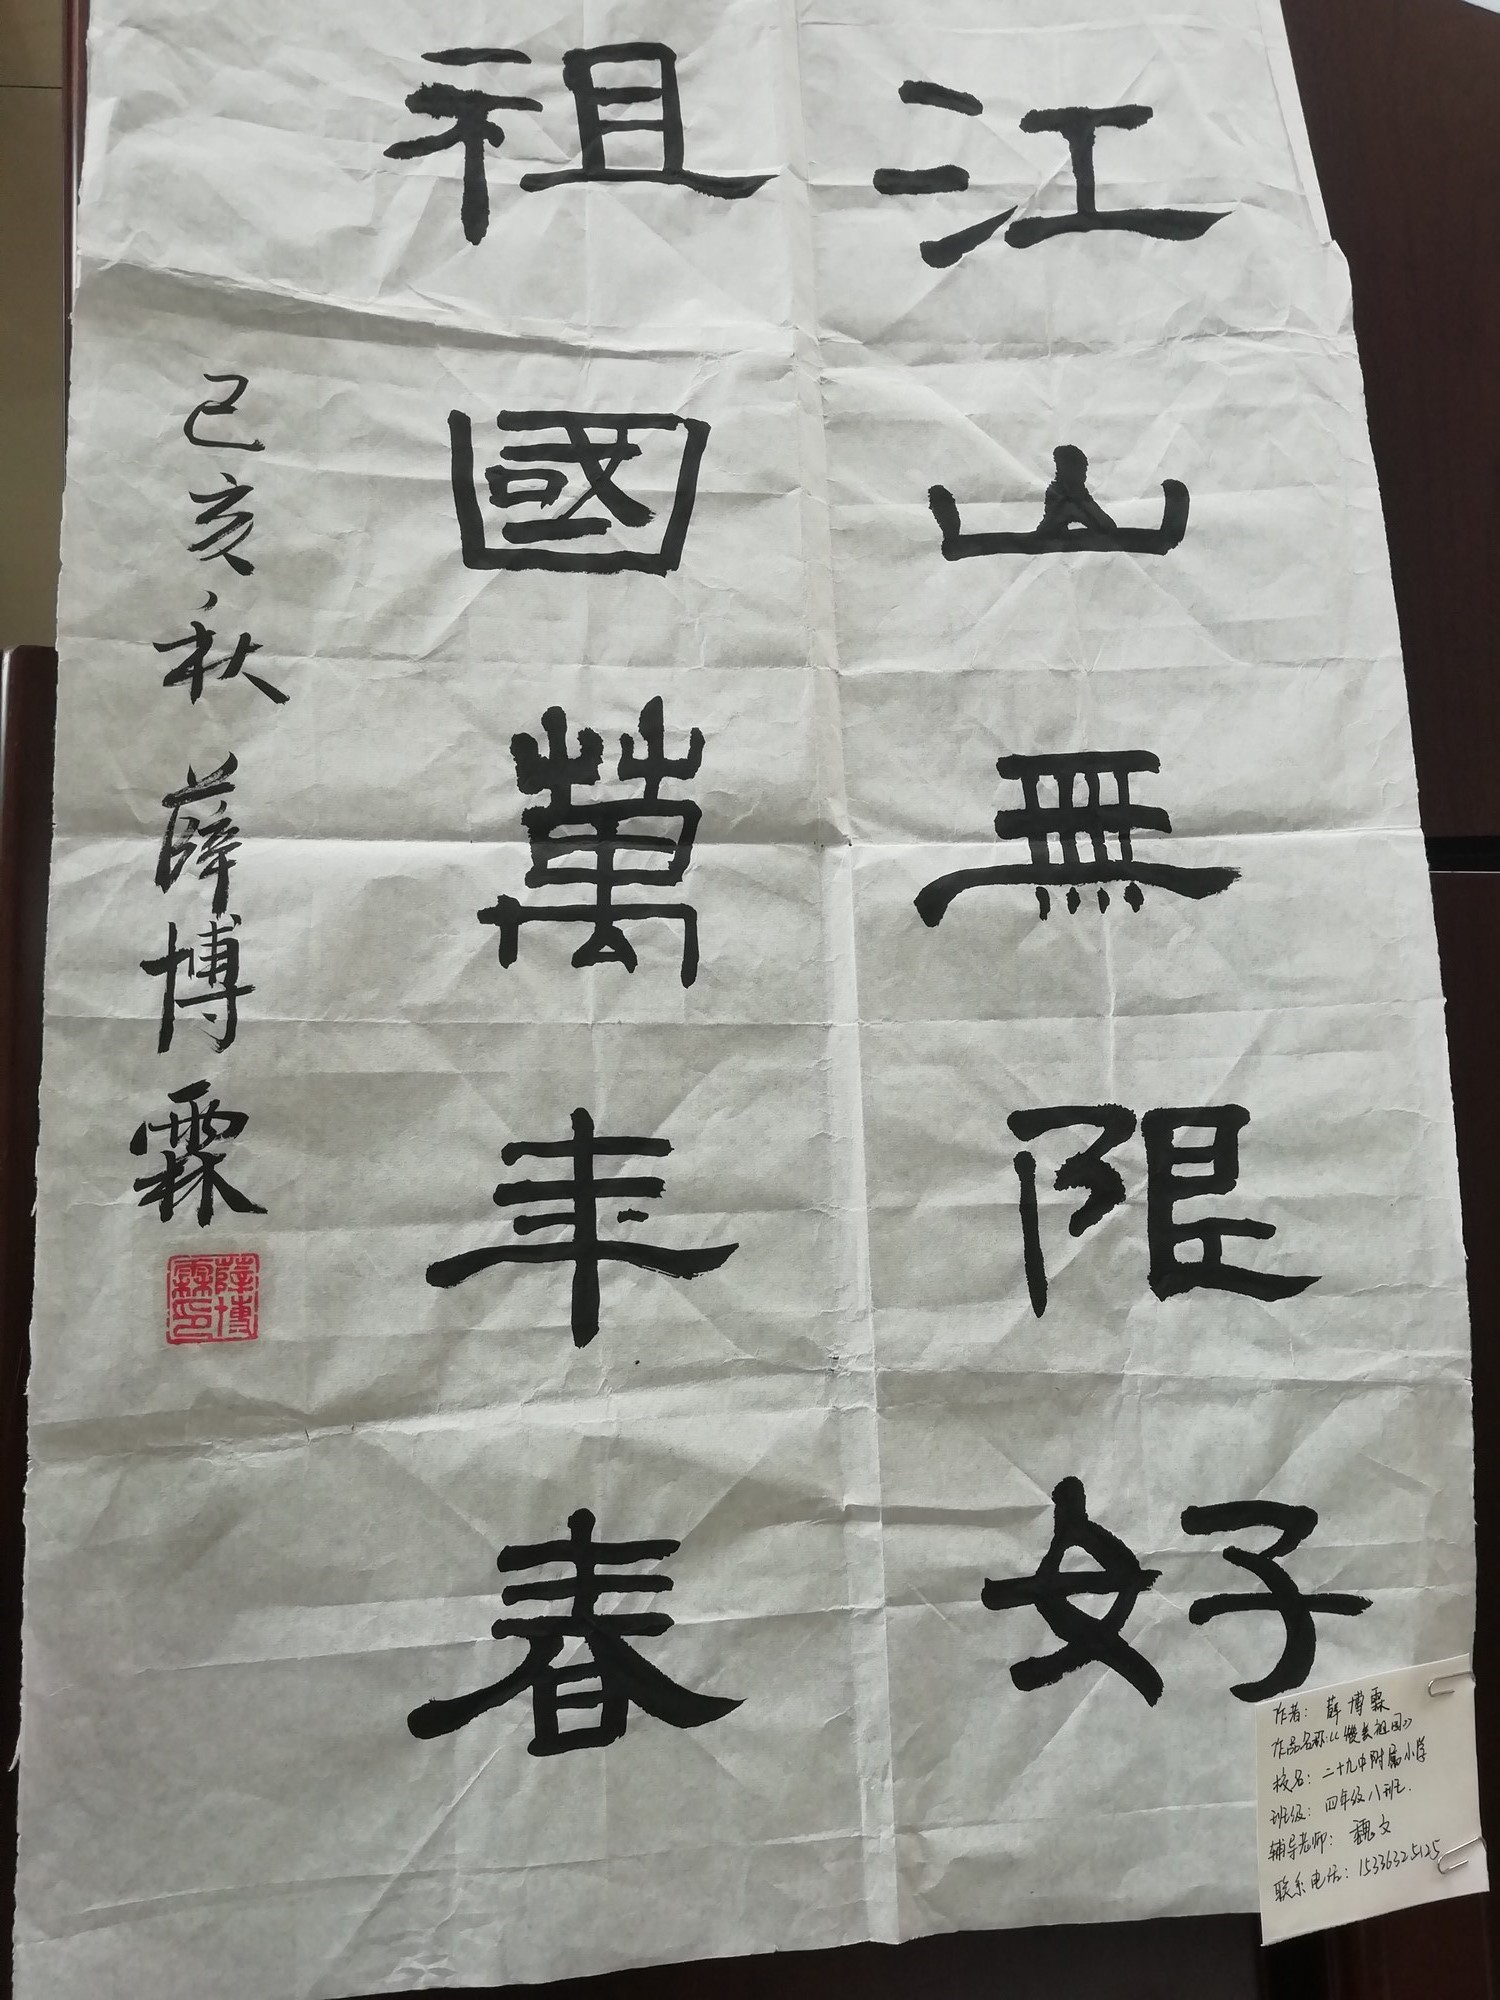 江山無限好
祖國萬年春
己亥秋 薛博霖
薛博霖印
作者：薛博霖
作品名称：《赞美祖国》
校名：二十九中附属小学
班级：四年级八班.
辅导老师：魏文
联系电话：15336325125